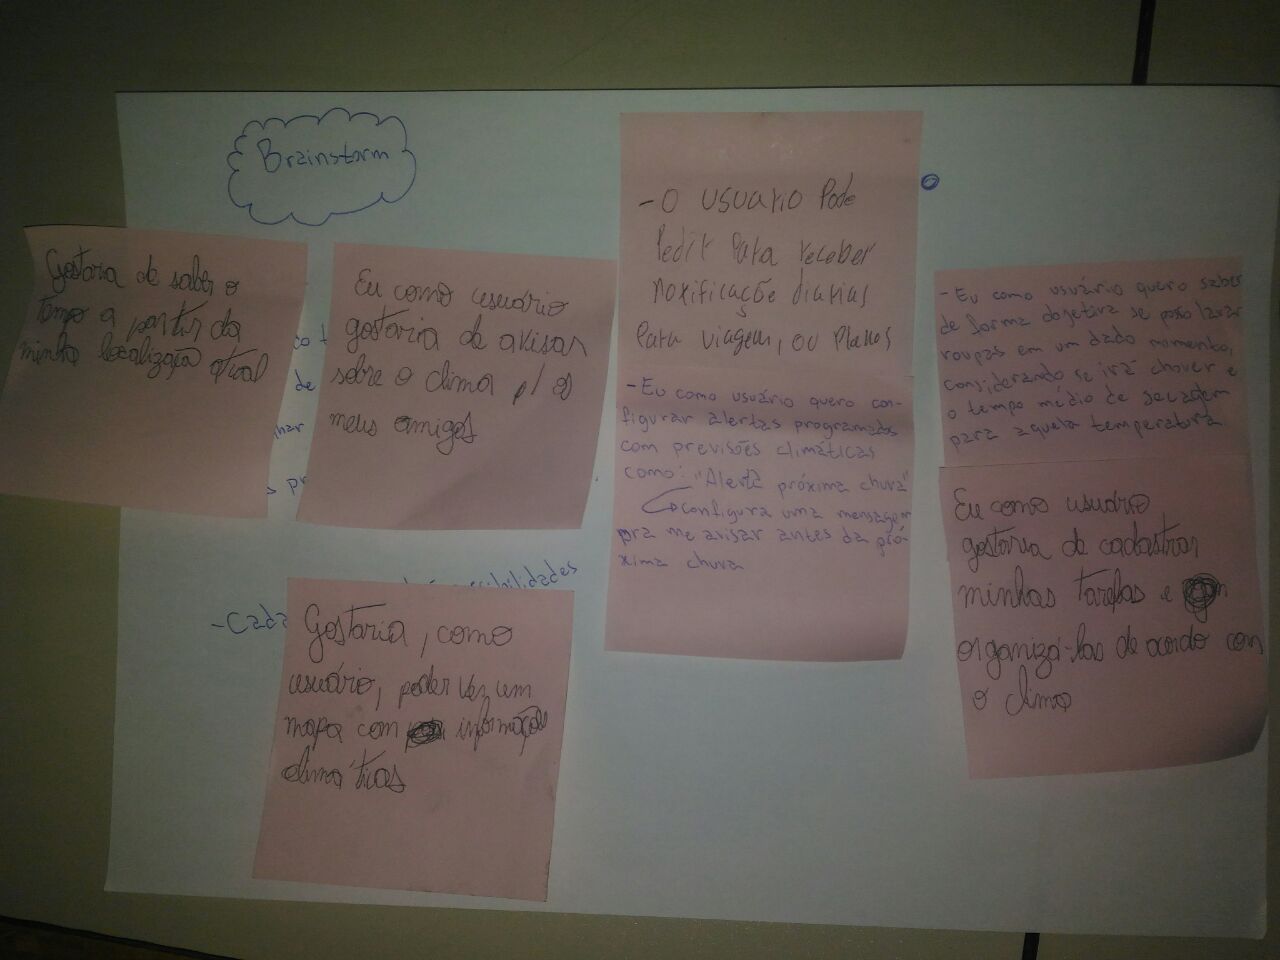 Brainstorm
Gostaria de saber o
tempo a partir da
minha localização atual
Eu como usuário
gostaria de avisar
sobre o clima p/ os
meus amigos
- O usuario Pode
Pedir Para receber
Notificação diarias
Para viagem, ou Planos
- Eu como usuário quero con-
figurar alertas programados
com previsões climáticas
como: "Alerta próxima chuva"
configura uma mensagem
pra me avisar antes da pró-
xima chuva
- Eu como usuário quero saber
de forma objetiva se posso lavar
roupas em um dado momento,
considerando se irá chover e
o tempo médio de secagem
para aquela temperatura.
Eu como usuário
gostaria de cadastrar
minhas tarefas e
organizá-las de acordo com
o clima
de
- Cada
Gostaria, como
usuário, poder ver um
mapa com informações
climáticas